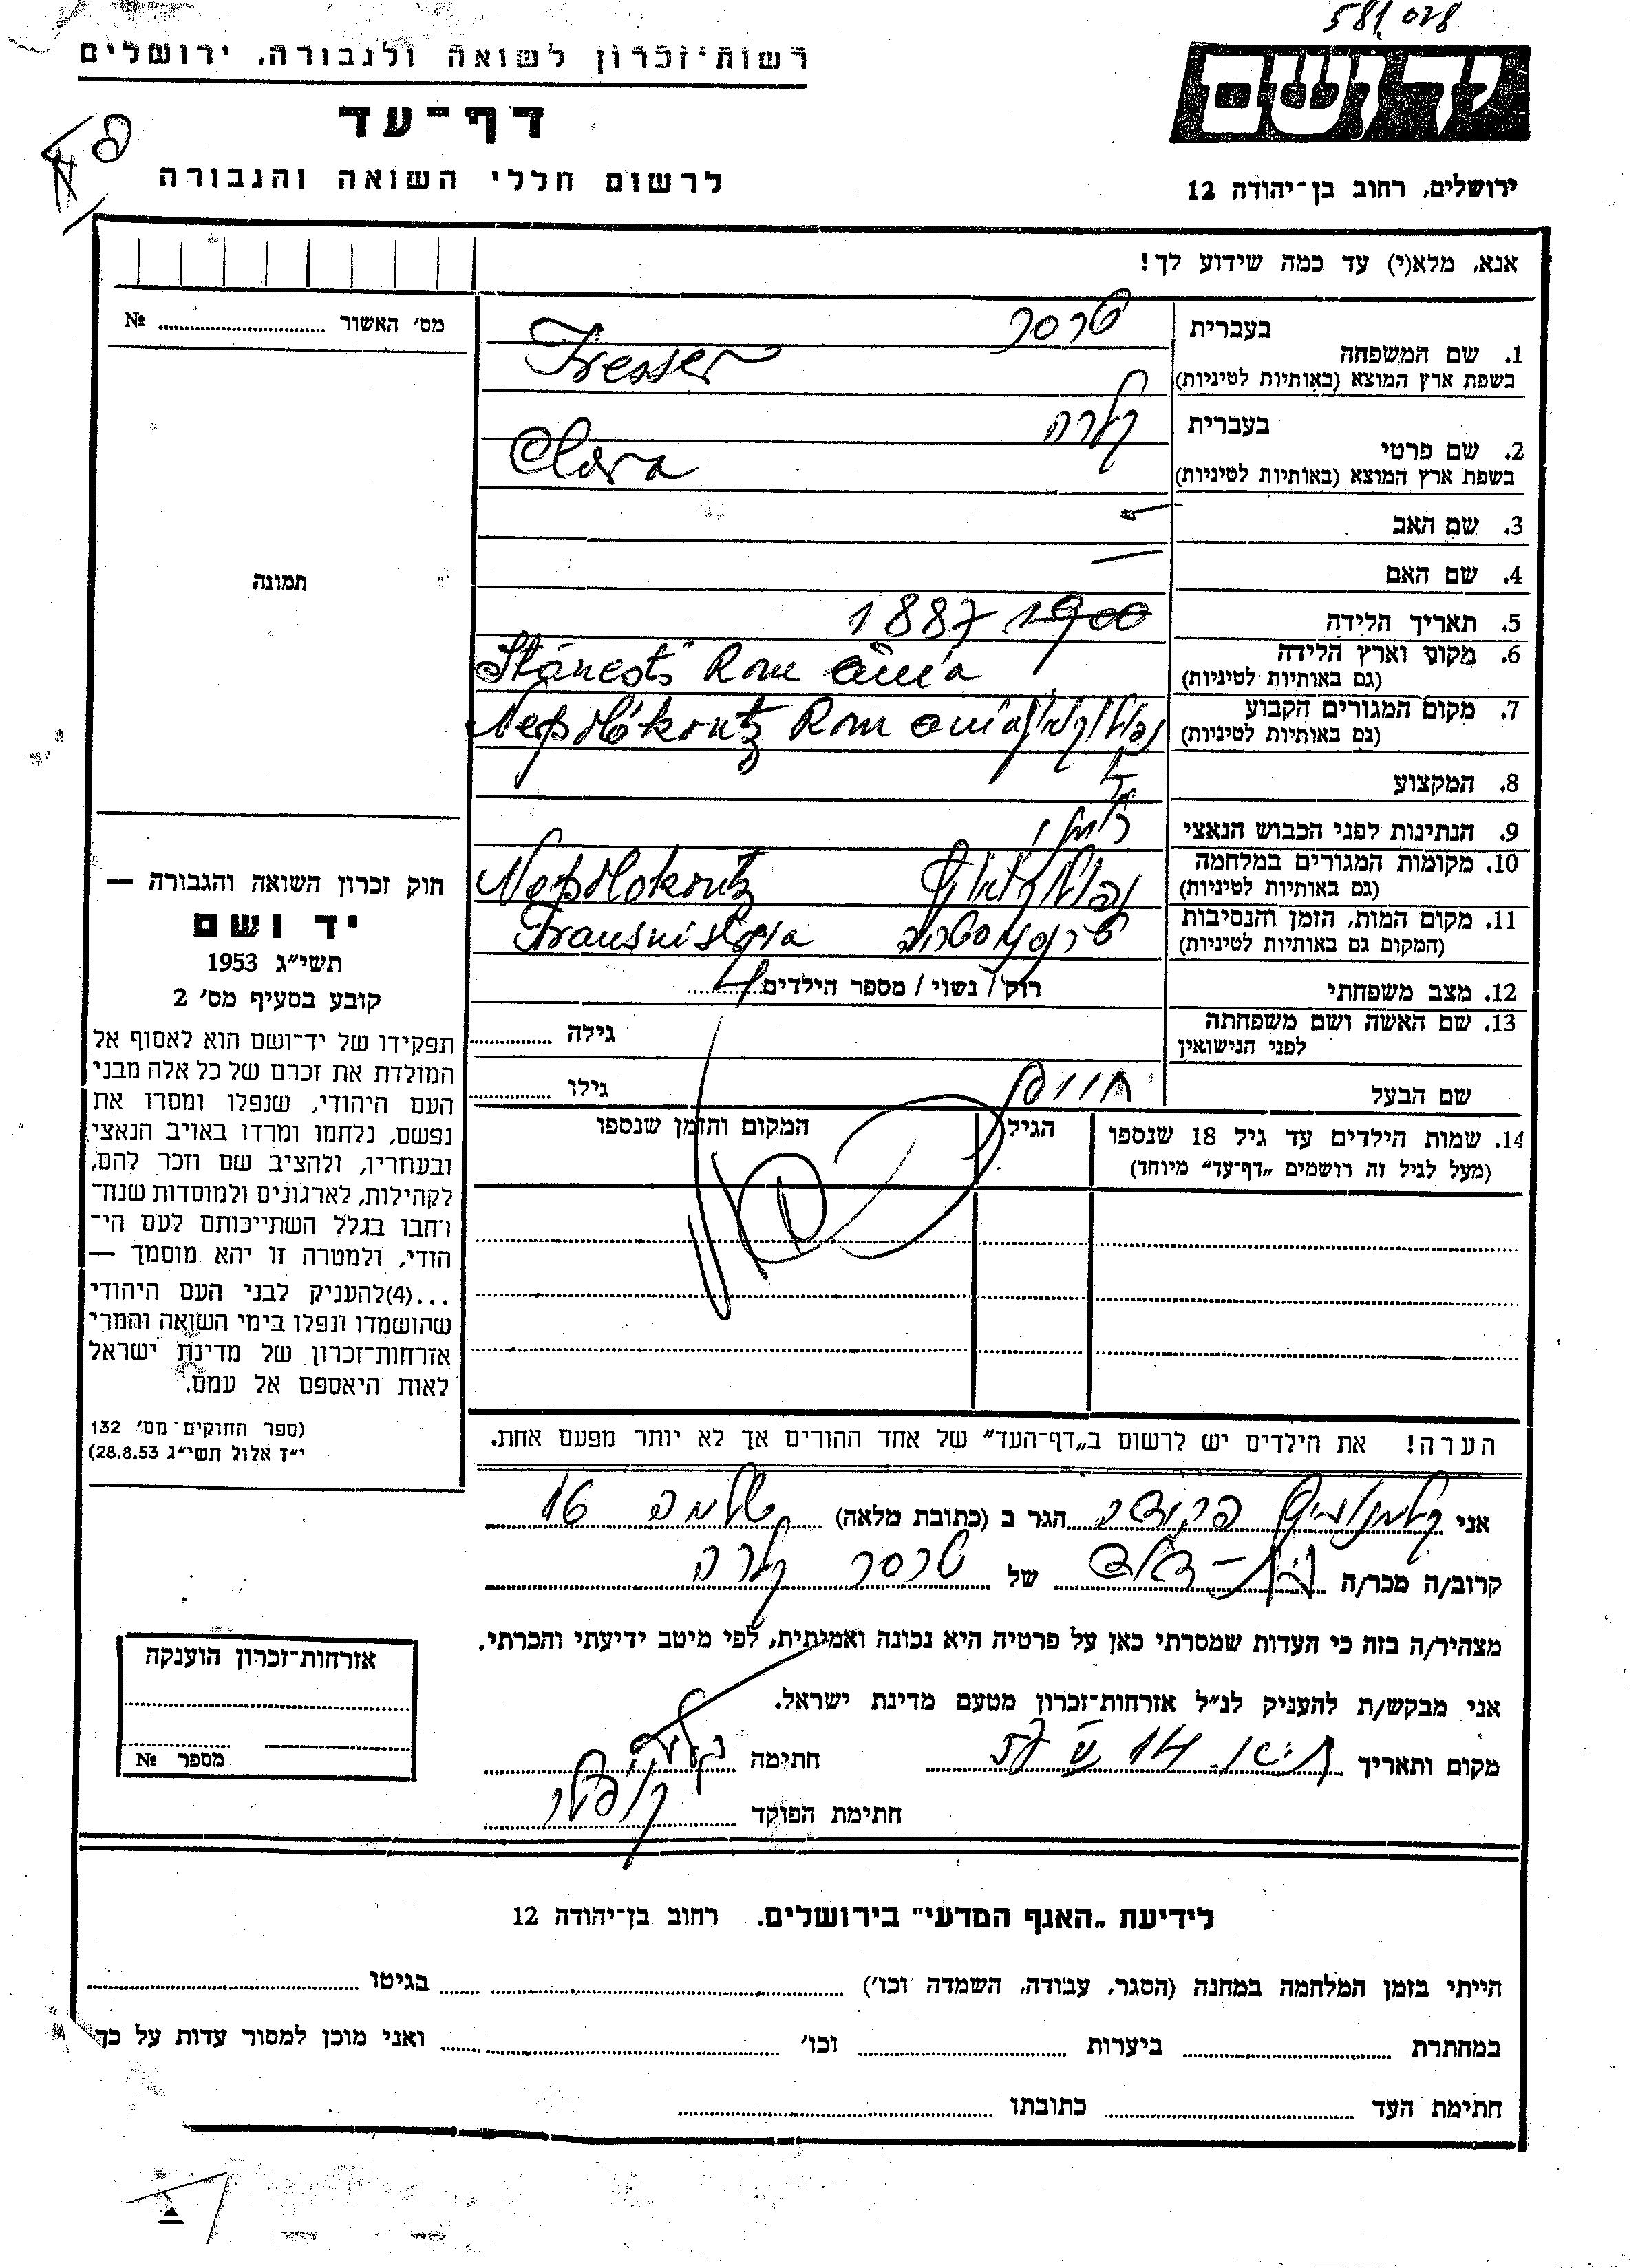 581/028
רשות־זכרון לשואה ולגבורה, ירושלים
יד ושם
דף־עד
לרשום חללי השואה והגבורה
ירושלים, רחוב בן־יהודה 12
אנא, מלא(י) עד כמה שידוע לך!
מס׳ האשור № 
1. שם המשפחה
בעברית טרסר
בשפת ארץ המוצא (באותיות לטיניות) Tresser
2. שם פרטי
בעברית קלרה
בשפת ארץ המוצא (באותיות לטיניות) Clara
3. שם האב –
4. שם האם –
תמונה
5. תאריך הלידה 1900 1887
6. מקום וארץ הלידה
(גם באותיות לטיניות) Stánesti Romania
7. מקום המגורים הקבוע
(גם באותיות לטיניות) Nepolokoutz Romania
8. המקצוע
9. הנתינות לפני הכבוש הנאצי
10. מקומות המגורים במלחמה
(גם באותיות לטיניות) Nepolokoutz
11. מקום המות, הזמן והנסיבות
(המקום גם באותיות לטיניות) טרנסניסטריה Transnistria
12. מצב משפחתי רוק / נשוי / מספר הילדים 4
13. שם האשה ושם משפחתה
לפני הנישואין גילה
שם הבעל גילו
14. שמות הילדים עד גיל 18 שנספו
(מעל לגיל זה רושמים „דף־עד״ מיוחד)
הגיל
המקום והזמן שנספו
חוק זכרון השואה והגבורה —
יד ושם
תשי״ג 1953
קובע בסעיף מס׳ 2
תפקידו של יד־ושם הוא לאסוף אל
המולדת את זכרם של כל אלה מבני
העם היהודי, שנפלו ומסרו את
נפשם, נלחמו ומרדו באויב הנאצי
ובעוזריו, ולהציב שם וזכר להם,
לקהילות, לארגונים ולמוסדות שנח־
רחבו בגלל השתייכותם לעם הי־
הודי, ולמטרה זו יהא מוסמך —
...(4)להעניק לבני העם היהודי
שהושמדו ונפלו בימי השואה והמרי
אזרחות־זכרון של מדינת ישראל
לאות היאספם אל עמם.
(ספר החוקים מס׳ 132
י״ז אלול תשי״ג 28.8.53)
הערה! את הילדים יש לרשום ב„דף־העד״ של אחד ההורים אך לא יותר מפעם אחת.
אני הגר ב (כתובת מלאה) שלמה 16
קרוב/ה מכר/ה של טרסר קלרה
מצהיר/ה בזה כי העדות שמסרתי כאן על פרטיה היא נכונה ואמיתית, לפי מיטב ידיעתי והכרתי.
אני מבקש/ת להעניק לנ״ל אזרחות־זכרון מטעם מדינת ישראל.
מקום ותאריך 14 חתימה
חתימת הפוקד
אזרחות־זכרון הוענקה
מספר №
לידיעת „האגף המדעי״ בירושלים. רחוב בן־יהודה 12
הייתי בזמן המלחמה במחנה (הסגר, עבודה, השמדה וכו׳) בגיטו
במחתרת ביערות וכו׳ ואני מוכן למסור עדות על כך
חתימת העד כתובתו